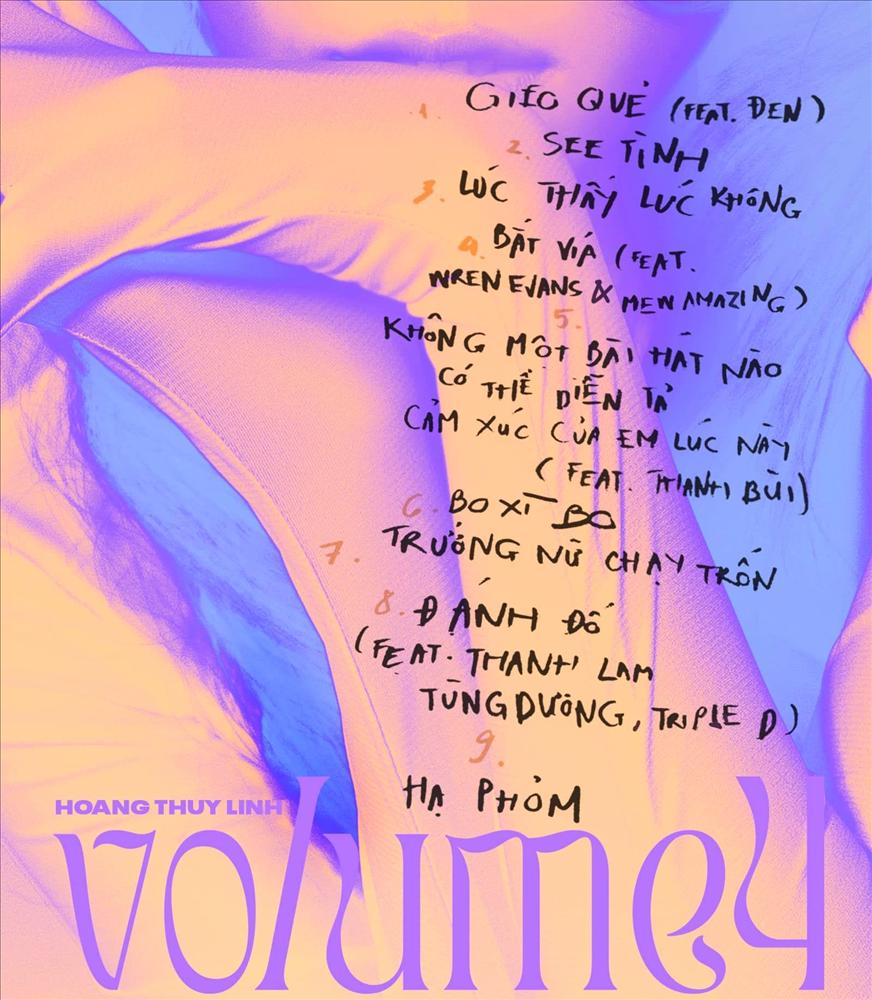 1. GIEO QUẺ (FEAT. ĐEN)
2. SEE TÌNH
3. LÚC THẤY LÚC KHÔNG
4. BẮT VÍA (FEAT.
WREN EVANS & MEW AMAZING)
5.
KHÔNG MỘT BÀI HÁT NÀO
CÓ THỂ DIỄN TẢ
CẢM XÚC CỦA EM LÚC NÀY
(FEAT. THANH BÙI)
6. BO XÌ BO
7. TRƯỞNG NỮ CHẠY TRỐN
8. ĐÁNH ĐỐ
(FEAT. THANH LAM
TÙNG DƯƠNG, TRIPLE D)
9.
HẠ PHỎM
HOANG THUY LINH
volume4